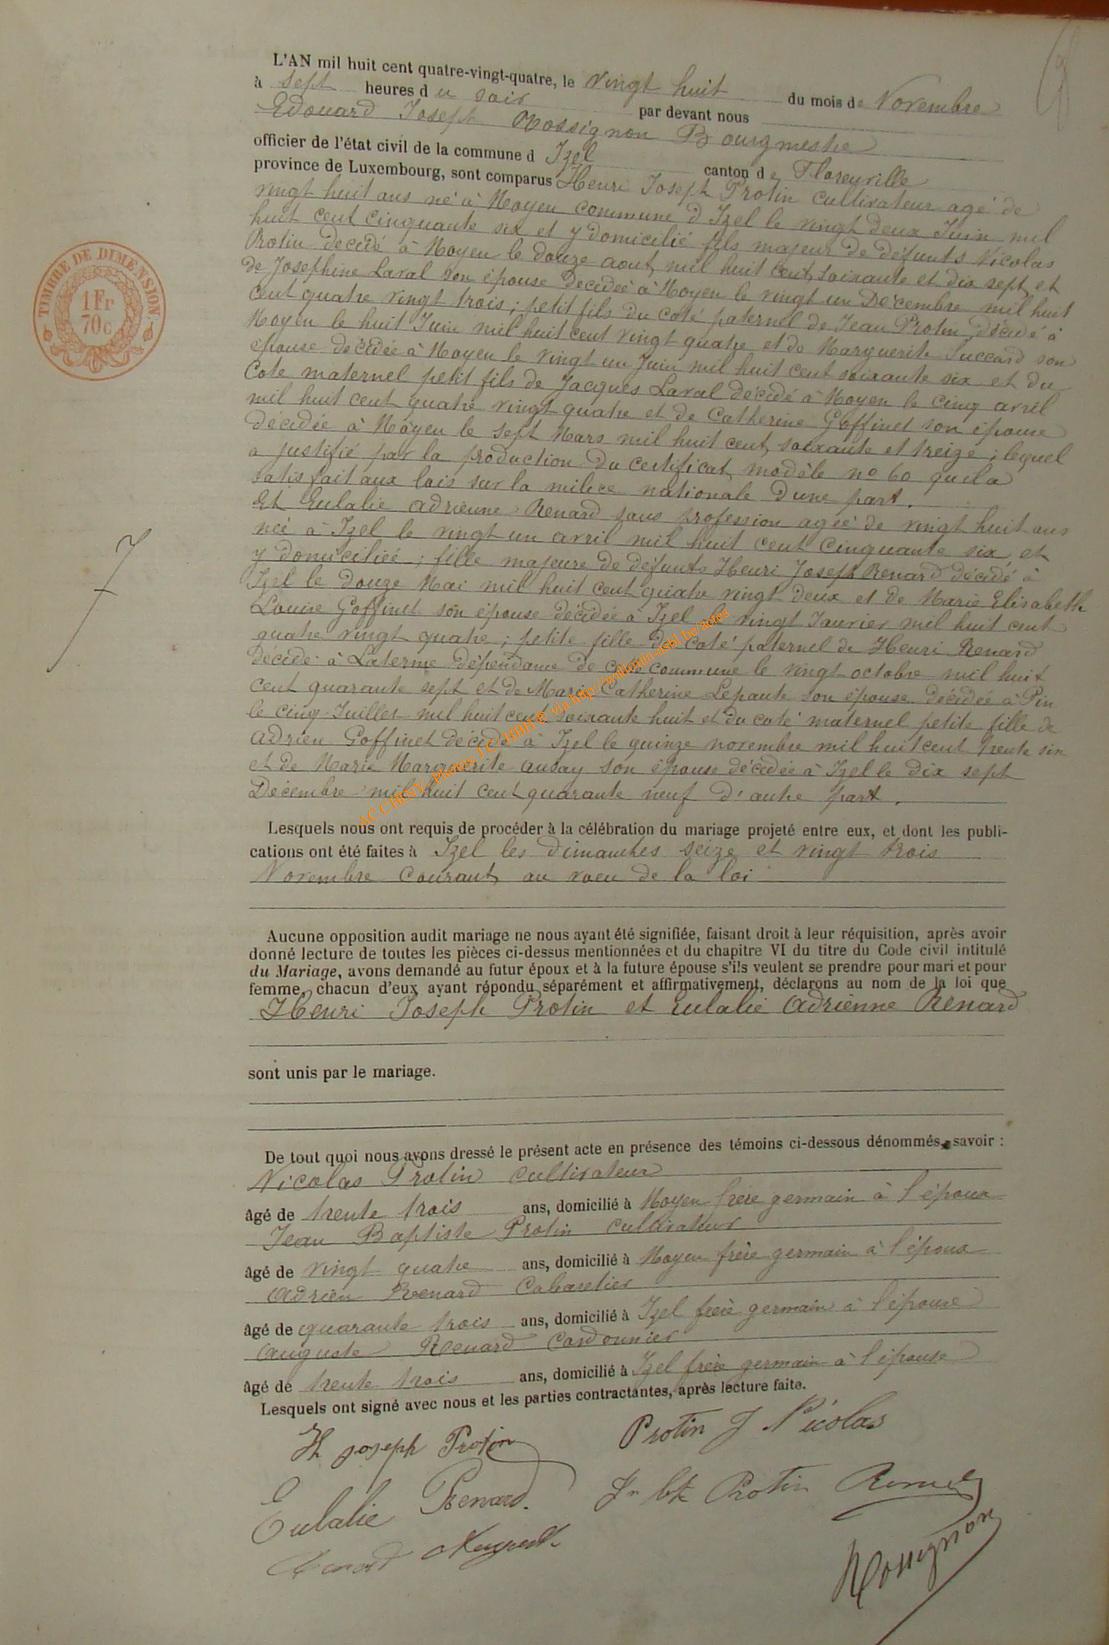 L'AN mil huit cent quatre-vingt-quatre, le vingt huit du mois de Novembre
à sept heures du soir par devant nous
Edouard Joseph Rossignon Bourgmestre
officier de l'état civil de la commune d Izel canton de Florenville
province de Luxembourg, sont comparus Henri Joseph Protin cultivateur agé de
vingt huit ans né à Moyen commune d Izel le vingt deux Juin mil
huit cent cinquante six et y domicilié fils majeur de défunts Nicolas
Protin decédé à Moyen le douze aout mil huit cent soixante et dix sept et
de Josephine Laval son épouse Decédée à Moyen le vingt un Décembre mil huit
cent quatre vingt trois ; petit fils du coté paternel de Jean Protin décédé à
Moyen le huit Juin mil huit cent vingt quatre et de Marguerite son
épouse decédée à Moyen le vingt un Juin mil huit cent soixante six et du
Cote maternel petit fils de Jacques Laval decédé à Moyen le cinq avril
mil huit cent quatre vingt quatre et de Catherine Goffinet son épouse
décédée à Moyen le sept Mars mil huit cent soixante et treize ; lequel
a justifié par la production du certificat modèle n° 60 quil a
satisfait aux lois sur la milice nationale D'une part.
Et Eulalie adrienne Renard sans profession agée de vingt huit ans
née à Izel le vingt un avril mil huit cent cinquante six et
y domiciliée ; fille majeure de défunts Henri Joseph Renard décédé à
Izel le douze Mai mil huit cent quatre vingt deux et de Marie Elisabeth
Louise Goffinet son épouse décédée à Izel le vingt Janvier mil huit cent
quatre vingt quatre ; petite fille du coté paternel de Henri Renard
Décédé à dépendance de cette commune le vingt octobre mil huit
cent quarante sept et de Marie Catherine Lepaute son épouse décédée à Pin
le cinq Juillet mil huit cent soixante huit et du coté maternel petite fille de
Adrien Goffinet décédé à Izel le quinze novembre mil huit cent trente six
et de Marie Marguerite son épouse décédée à Izel le dix sept
Décembre mil huit cent quarante neuf d'autre part.
Lesquels nous ont requis de procéder à la célébration du mariage projeté entre eux, et dont les publi-
cations ont été faites à Izel les dimanches seize et vingt trois
Novembre courant au voeu de la loi
Aucune opposition audit mariage ne nous ayant été signifiée, faisant droit à leur réquisition, après avoir
donné lecture de toutes les pièces ci-dessus mentionnées et du chapitre VI du titre du Code civil intitulé
du Mariage, avons demandé au futur époux et à la future épouse s'ils veulent se prendre pour mari et pour
femme, chacun d'eux ayant répondu séparément et affirmativement, déclarons au nom de la loi que
Henri Joseph Protin et Eulalie Adrienne Renard
sont unis par le mariage.
De tout quoi nous avons dressé le présent acte en présence des témoins ci-dessous dénommés, savoir :
Nicolas Protin cultivateur
âgé de trente trois ans, domicilié à Moyen frère germain à l'époux
Jean Baptiste Protin cultivateur
âgé de vingt quatre ans, domicilié à Moyen frère germain à l'époux
Adrien Renard Cabaretier
âgé de quarante trois ans, domicilié à Izel frère germain à l'épouse
Auguste Renard Cordonnier
âgé de trente trois ans, domicilié à Izel frère germain à l'épouse
Lesquels ont signé avec nous et les parties contractantes, après lecture faite.
H joseph Protin
Protin J Nicolas
Eulalie Renard.
Jn bte Protin
Renard
Rossignon
TIMBRE DE DIMENSION.
1 Fr
70c
7